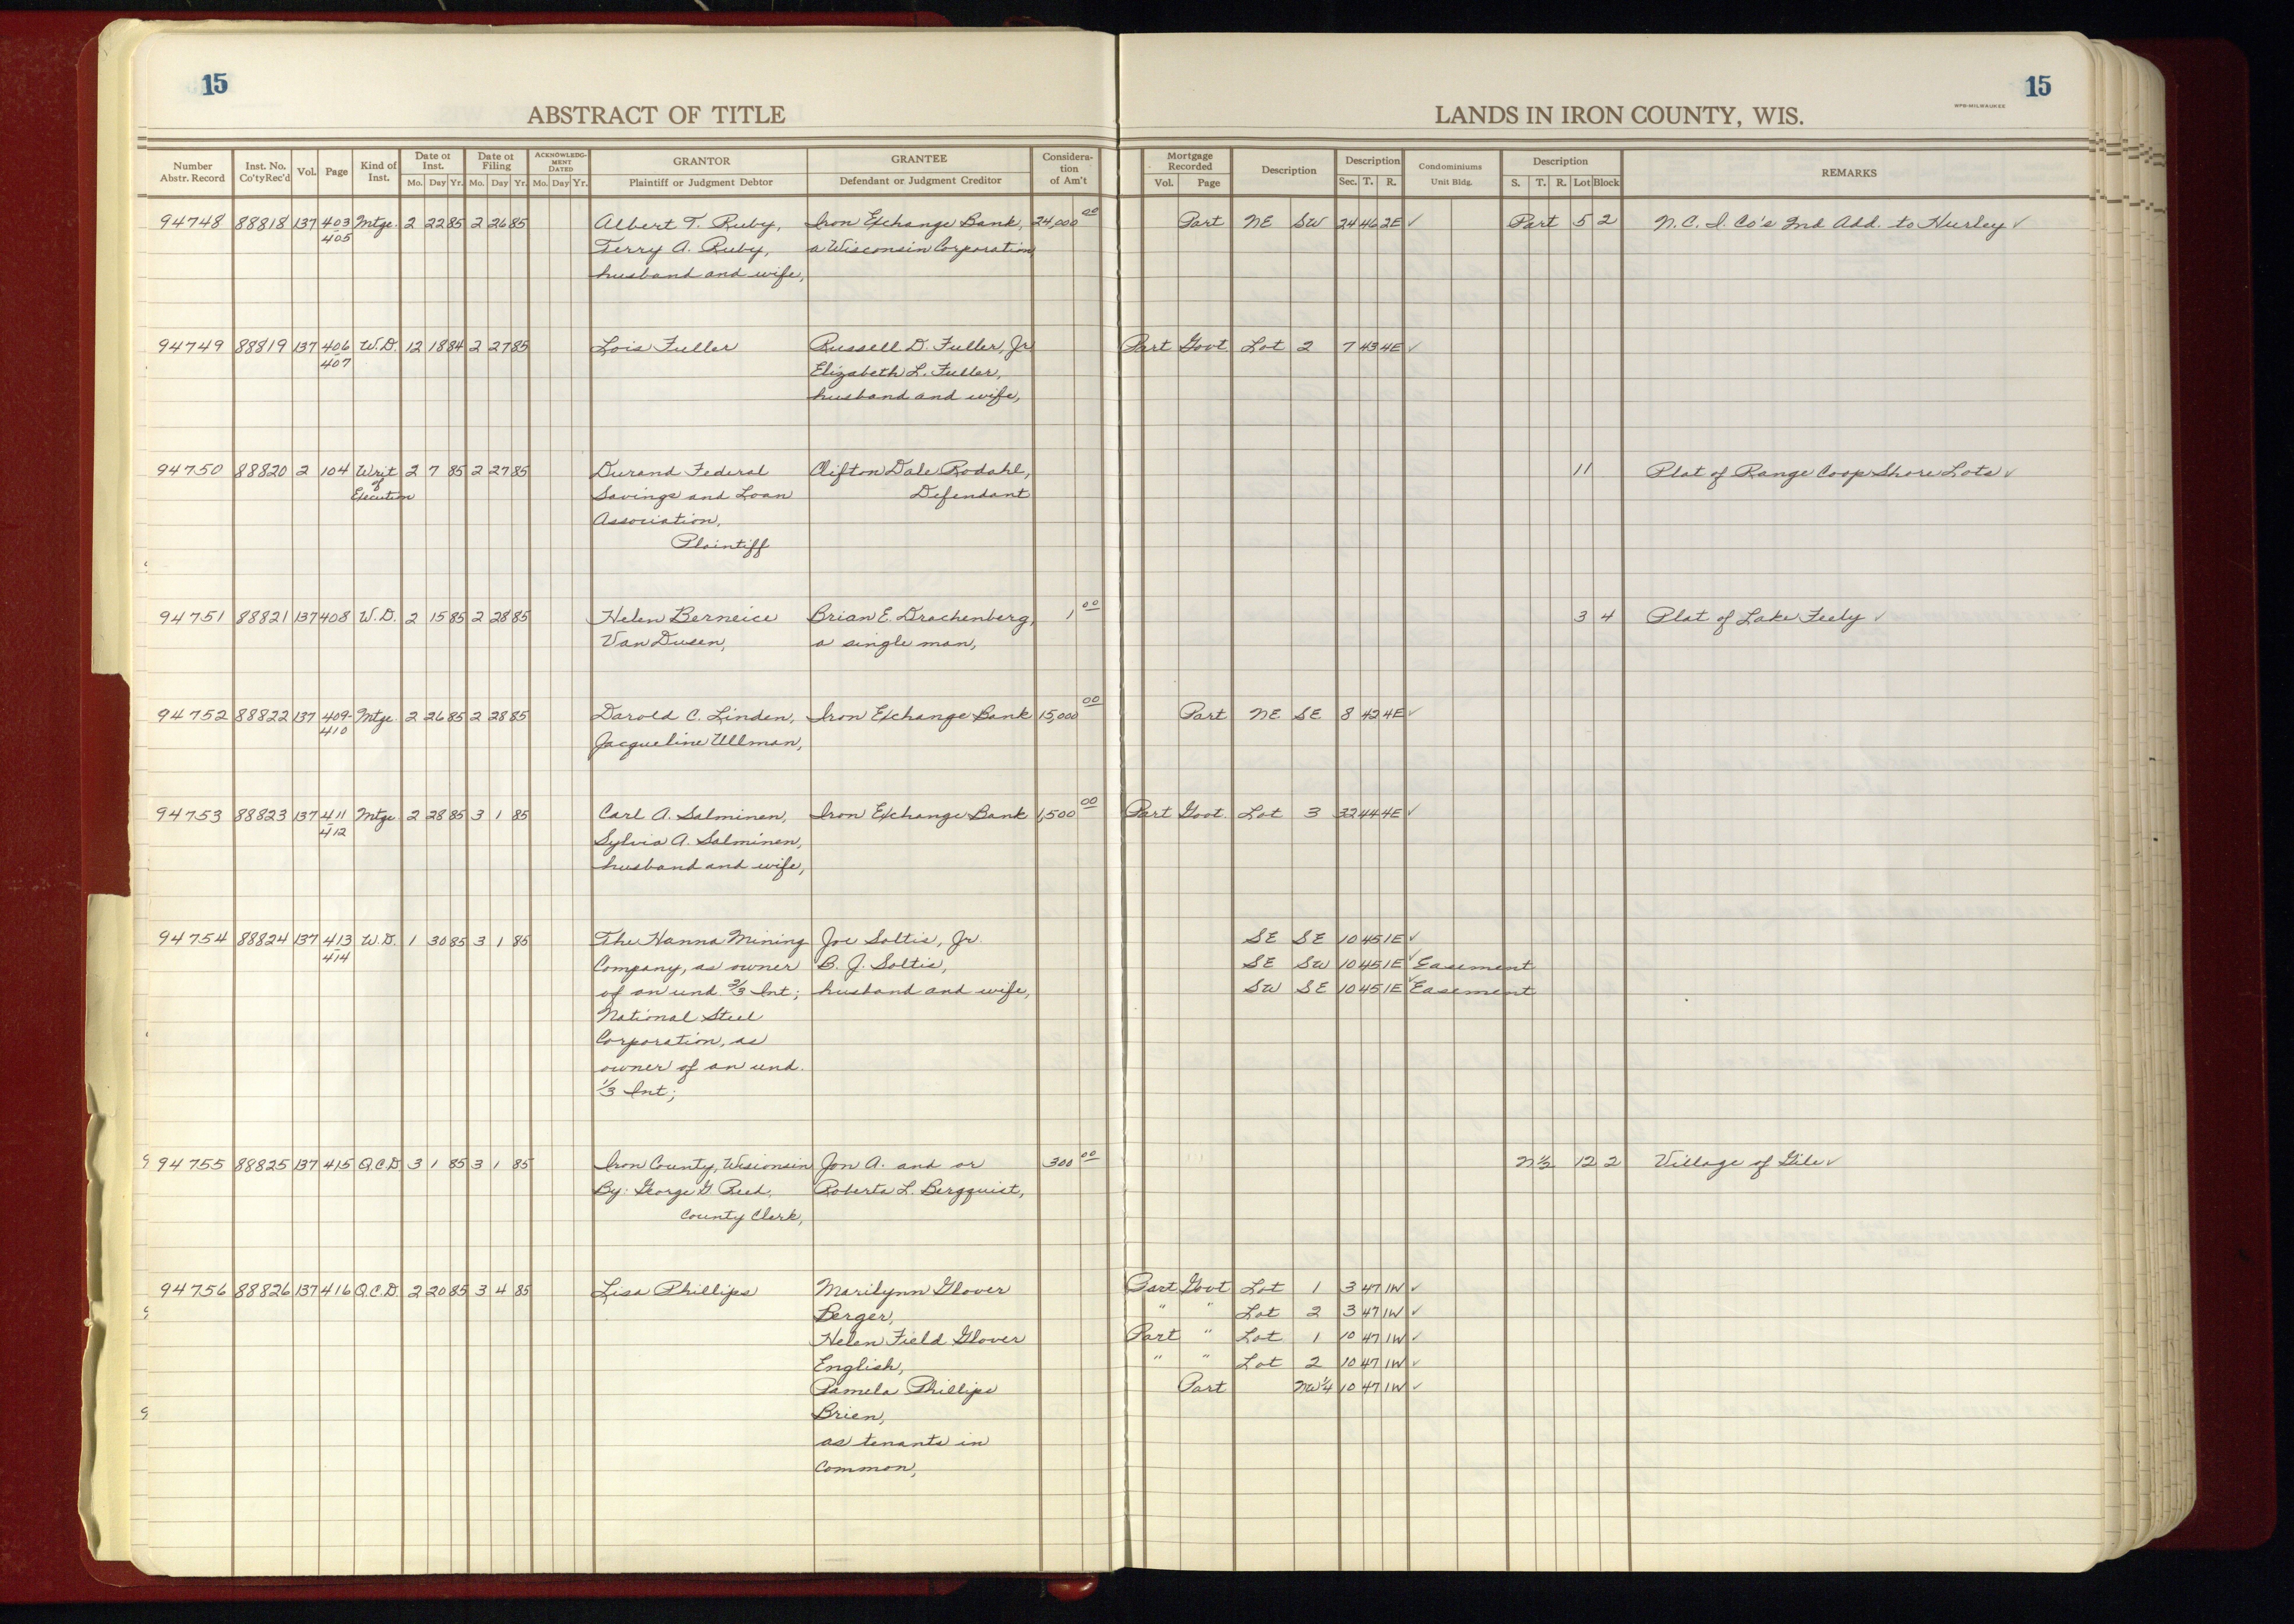 15
15
ABSTRACT OF TITLE
LANDS IN IRON COUNTY, WIS.
WPB-MILWAUKEE
Number Abstr. Record | Inst. No. Co'tyRec'd | Vol. | Page | Kind of Inst. | Date of Inst. Mo. Day Yr. | Date of Filing Mo. Day Yr. | ACKNOWLEDGMENT DATED Mo. Day Yr. | GRANTOR Plaintiff or Judgment Debtor | GRANTEE Defendant or Judgment Creditor | Consideration of Am't | Mortgage Recorded Vol. Page | Description | Description Sec. T. R. | Condominiums Unit Bldg. | Description S. T. R. Lot Block | REMARKS
94748 88818 137 403 Mtge. 2 22 85 2 26 85 Albert T. Ruby, Iron Exchange Bank, 24,000 00 Part NE SW 24 46 2E ✓ Part 5 2 N.C.I. Co's 2nd Add. to Hurley ✓
405 Terry A. Ruby, a Wisconsin Corporation
husband and wife,
94749 88819 137 406 W.D. 12 18 84 2 27 85 Lois Fuller Russell D. Fuller, Jr. Part Govt Lot 2 7 43 4E ✓
407 Elizabeth L. Fuller,
husband and wife,
94750 88820 2 104 Writ 2 7 85 2 27 85 Durand Federal Clifton Dale Rodahl, 11 Plat of Range Coop Shore Lots ✓
of Execution Savings and Loan Defendant
Association,
Plaintiff
94751 88821 137 408 W.D. 2 15 85 2 28 85 Helen Berneice Brian E. Drachenberg, 1 00 3 4 Plat of Lake Feely ✓
Van Dusen, a single man,
94752 88822 137 409- Mtge. 2 26 85 2 28 85 Darold C. Linden, Iron Exchange Bank 15,000 00 Part NE SE 8 42 4E ✓
410 Jacqueline Ullman,
94753 88823 137 411 Mtge 2 28 85 3 1 85 Carl A. Salminen, Iron Exchange Bank 1,500 00 Part Govt. Lot 3 32 44 4E ✓
412 Sylvia A. Salminen,
husband and wife,
94754 88824 137 413 W.D. 1 30 85 3 1 85 The Hanna Mining Joe Soltis, Jr. SE SE 10 45 1E ✓
414 Company, as owner B. J. Soltis, SE SW 10 45 1E ✓ Easement
of an und. 2/3 Int; husband and wife, SW SE 10 45 1E ✓ Easement
National Steel
Corporation, as
owner of an und.
1/3 Int;
94755 88825 137 415 Q.C.D. 3 1 85 3 1 85 Iron County, Wisconsin Jon A. and or 300 00 N½ 12 2 Village of Gile ✓
By: George G Reed, Roberta L. Bergquist,
County Clerk,
94756 88826 137 416 Q.C.D. 2 20 85 3 4 85 Lisa Phillips Marilynn Glover Part Govt Lot 1 3 47 1W ✓
Berger, " " Lot 2 3 47 1W ✓
Helen Field Glover Part " Lot 1 10 47 1W ✓
English, " " Lot 2 10 47 1W ✓
Pamela Phillips Part NW¼ 10 47 1W ✓
Brien,
as tenants in
Common,